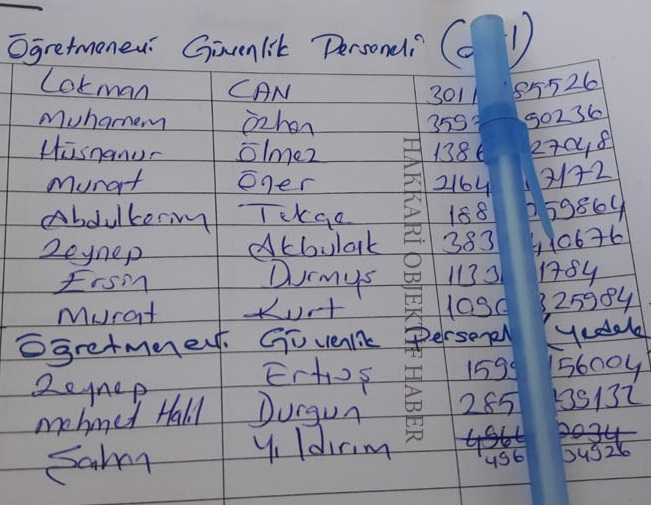 Öğretmenevi Güvenlik Personeli
Lokman CAN 301 85526
Muharrem Özhan 359 90236
Hüsnanur Ölmez 1386 27048
Murat Öner 2164 7172
Abdulkerim Tekçe 188 259864
Zeynep Akbulak 383 10676
Ersin Durmuş 113 1784
Murat Kurt 1090 325984
Öğretmenevi Güvenlik Personel (yedek
Zeynep Ertuş 159 156004
Mehmet Halil Durgun 285 39132
Yıldırım 496 34926
HAKKARİ OBJEKTİF HABER